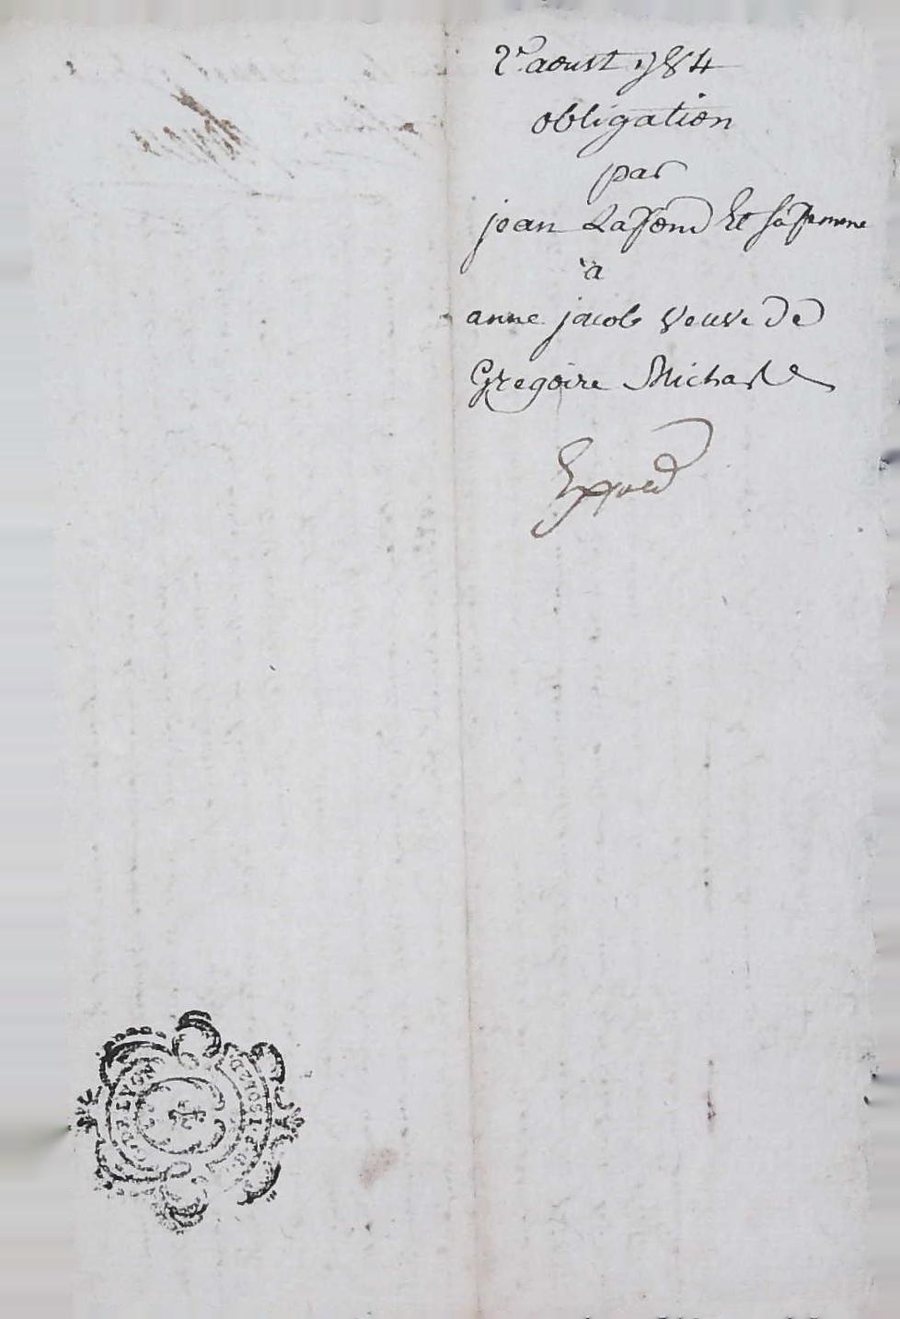 2e aoust 1784
obligation
par
jean Lafond Et sa femme
à
anne jacob veuve De
Gregoire Michard
Expéd